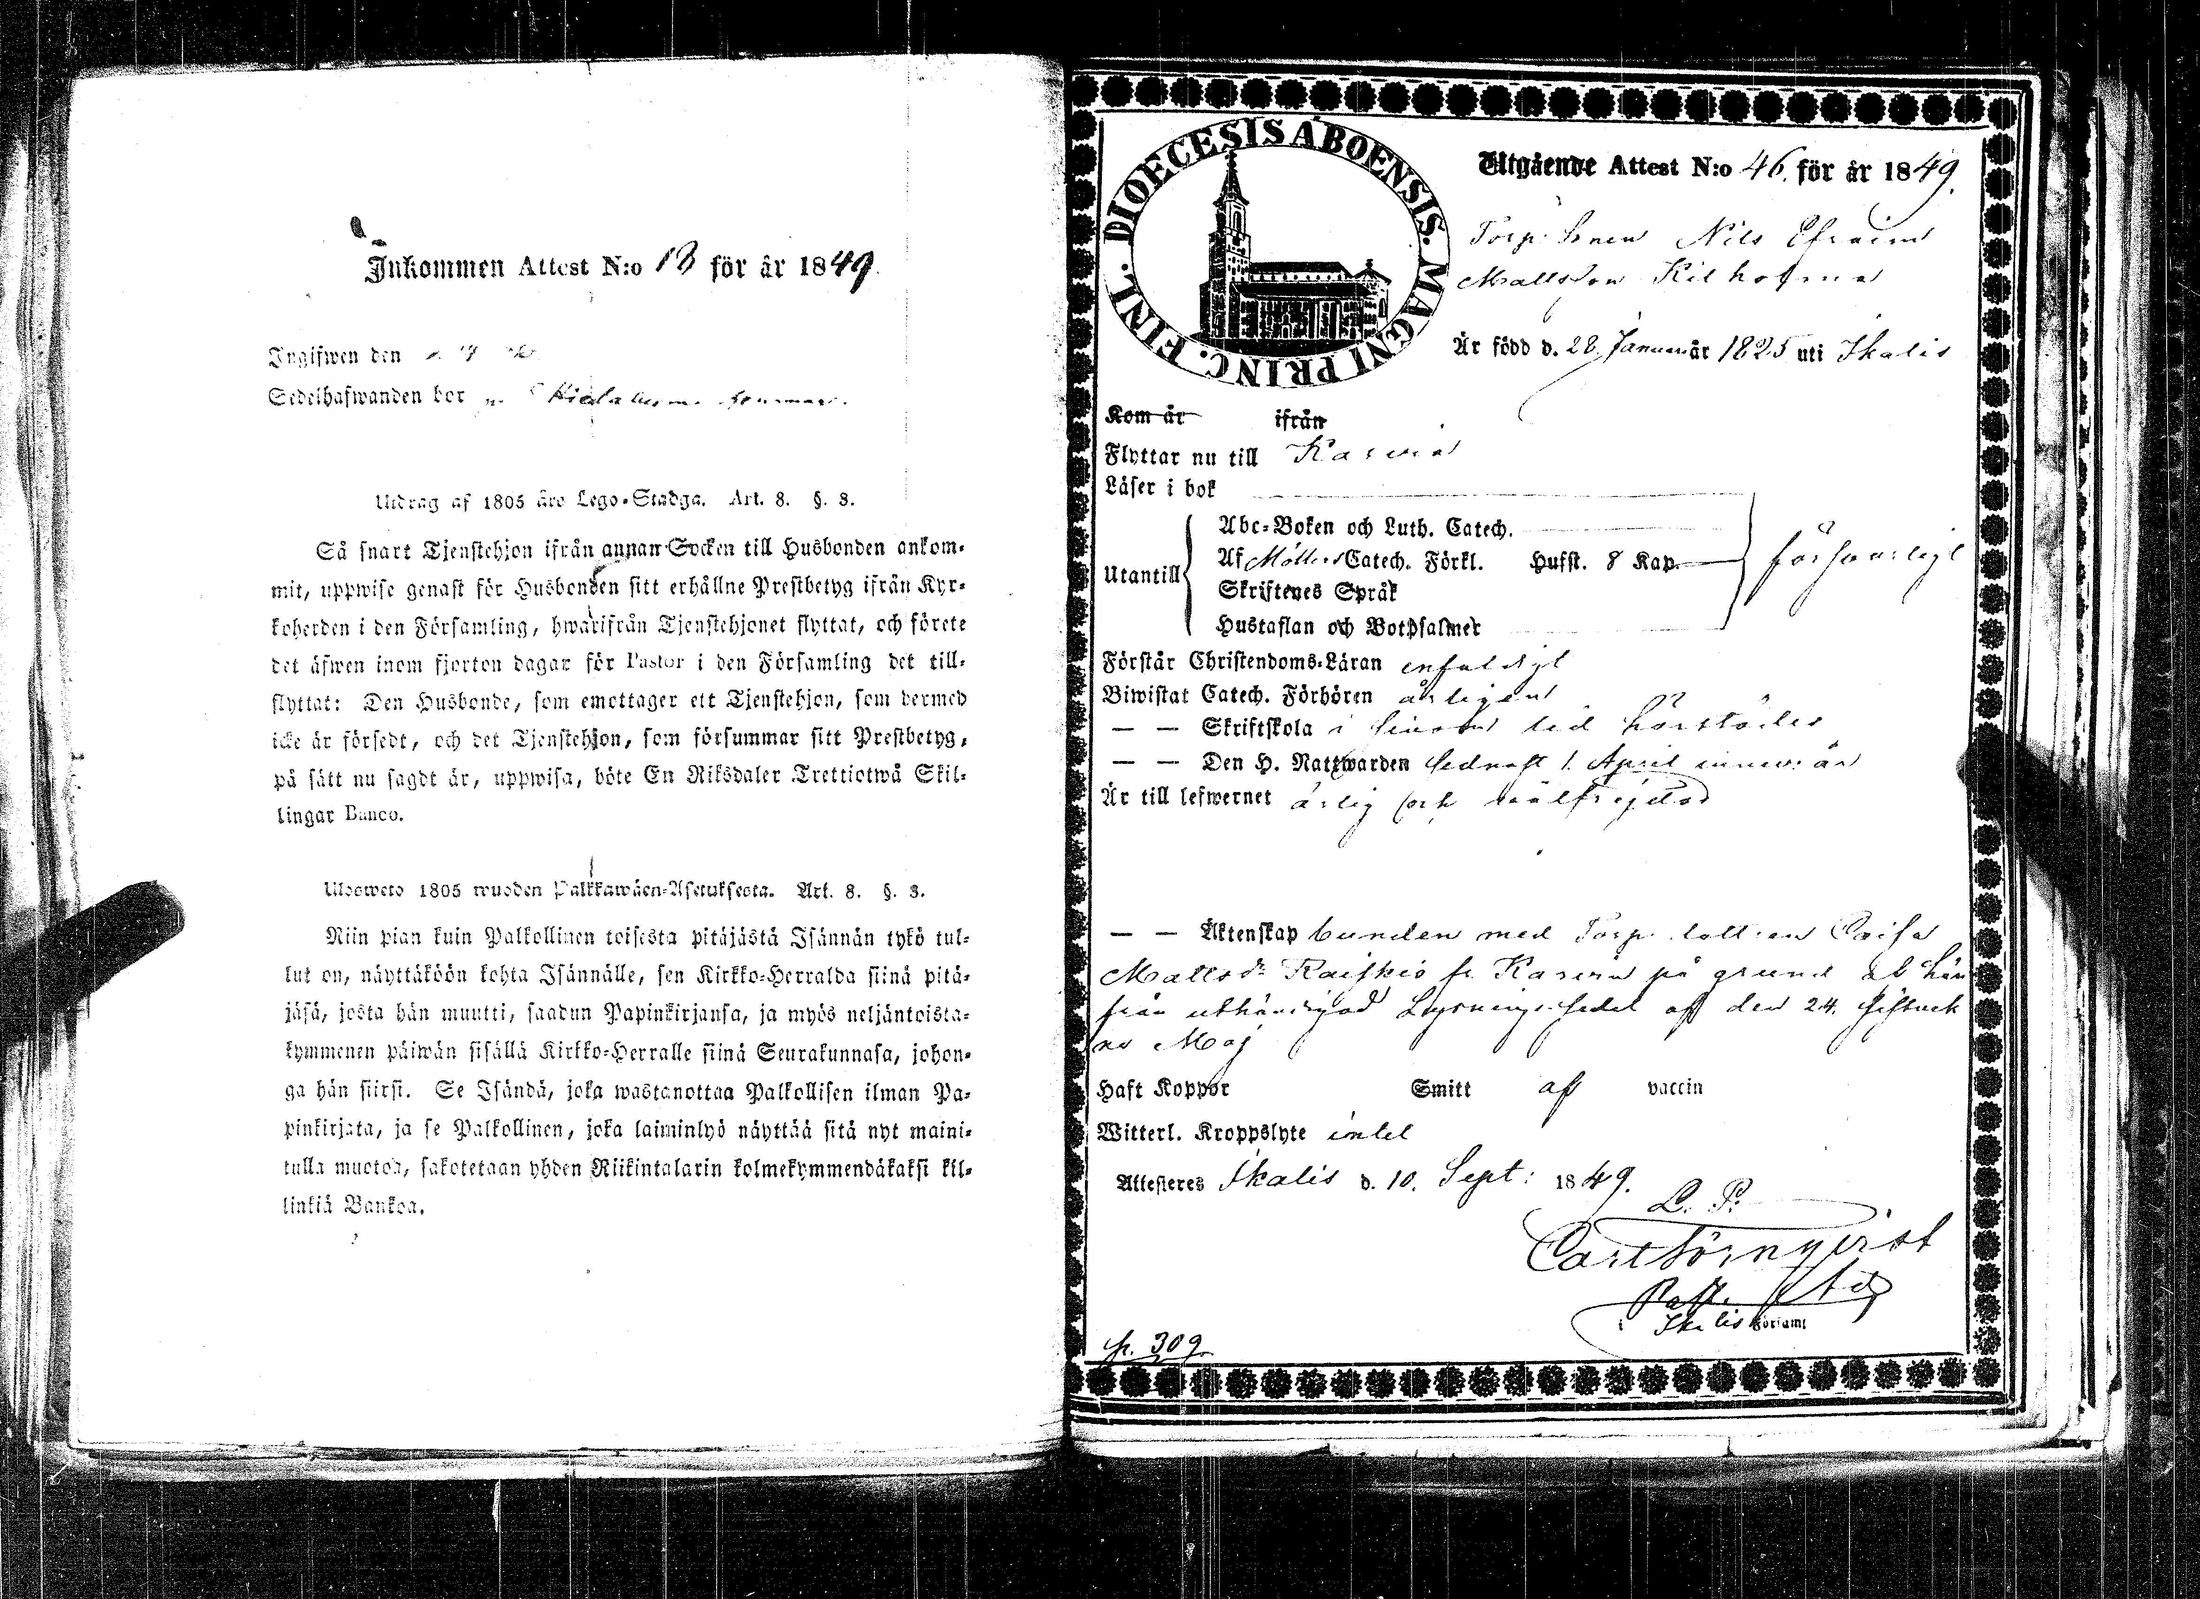 Inkommen Attest N:o 13 för år 1849.
Ingifwen den
Sedelhafwanden bor
Utdrag af 1805 års Lego-Stadga. Art. 8. §. 8.
Så snart Tjenstehjon ifrån annan Socken till Husbonden ankom-
mit, uppwise genast för Husbonden sitt erhållne Prestbetyg ifrån Kyr-
koherden i den Församling, hwarifrån Tjenstehjonet flyttat, och förete
det äfwen inom fjorton dagar för Pastor i den Församling det till-
flyttat: Den Husbonde, som emottager ett Tjenstehjon, som dermed
icke är försedt, och det Tjenstehjon, som försummar sitt Prestbetyg,
på sätt nu sagdt är, uppwisa, böte En Riksdaler Trettiotwå Skil-
lingar Banco.
Ulosweto 1805 wuoden Palkkawäen-Asetuksesta. Art. 8. §. 8.
Niin pian kuin Palkollinen toisesta pitäjästä Isännän tykö tul-
lut on, näyttäköön kohta Isännälle, sen Kirkko-Herralda siinä pitä-
jäsä, josta hän muutti, saadun Papinkirjansa, ja myös neljäntoista-
kymmenen päiwän sisällä Kirkko-Herralle siinä Seurakunnasa, johon-
ga hän siirsi. Se Isändä, joka wastanottaa Palkollisen ilman Pa-
pinkirjata, ja se Palkollinen, joka laiminlyö näyttää sitä nyt maini-
tulla muotoa, sakotetaan yhden Riikintalarin kolmekymmendäkaksi kil-
linkiä Bankoa.
DIOECESIS ABOENSIS. MAGNI PRINC. FINL.
Utgående Attest N:o 46. för år 1849.
Torp. Sonen Nils Efraim
Mattsson Kilholma
Är född d. 28 Januari år 1825 uti Ikalis
Kom år ifrån
Flyttar nu till Karvia
Läser i bok
Abc-Boken och Luth. Catech.
Utantill Af Möllers Catech. Förkl. Hufst. 8 Kap. försvarligt
Skriftenes Språk
Hustaflan och Botpsalmer
Förstår Christendoms-Läran enfaldigt
Biwistat Catech. Förhören årligen
— — Skriftskola i sinom tid härstädes
— — Den H. Nattwarden sednast 1. April innev. år
Är till lefwernet ärlig och wälfrejdad
— — Äktenskap bunden med Torp. dottren Caisa
Mattsdr Raiskio fr. Karvia på grund af här
ifrån uthändigad Lysningssedel af den 24. sistvek
ne Maj
Haft Koppor Smitt af vaccin
Witterl. Kroppslyte intet
Attesteras Ikalis d. 10. Sept: 1849.
L. P.
Carl Törnqvist
Past. Adj
i Ikalis Församl
p. 309.